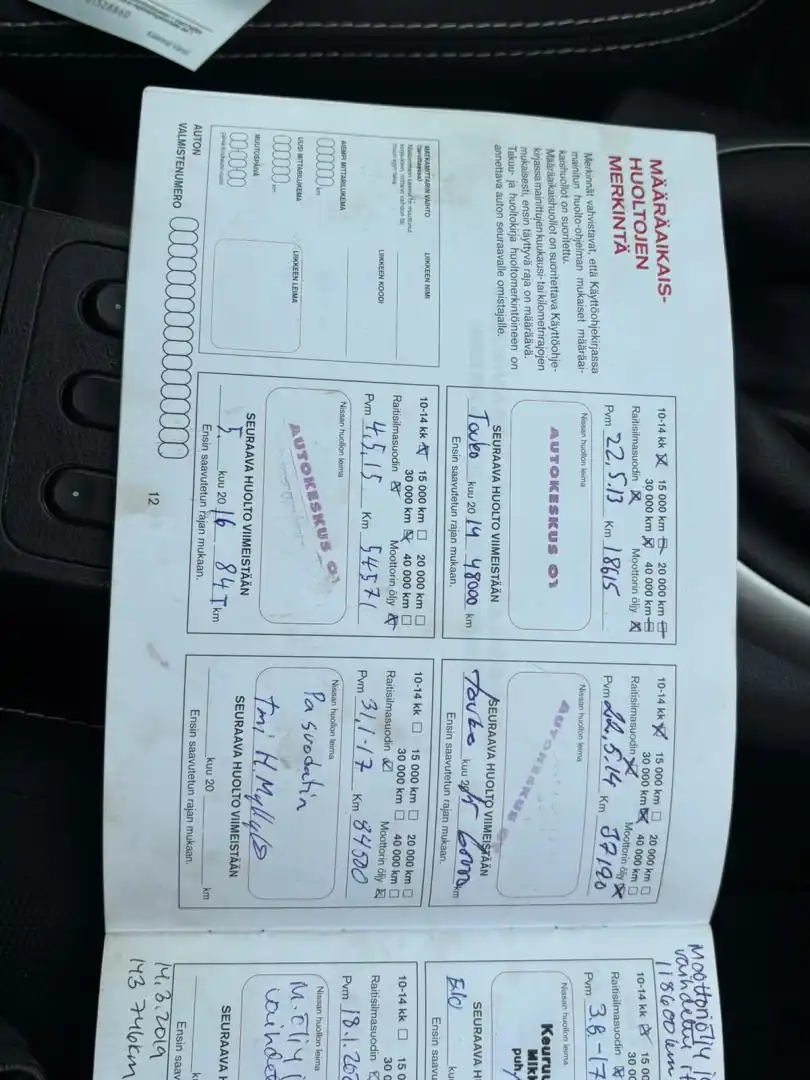 MÄÄRÄAIKAIS-
HUOLTOJEN
MERKINTÄ
Merkinnät vahvistavat, että Käyttöohjekirjassa
mainitun huolto-ohjelman mukaiset määräai-
kaishuollot on suoritettu.
Määräaikaishuollot on suoritettava Käyttöohje-
kirjassa mainittujen kuukausi- tai kilometrirajojen
mukaisesti, ensin täyttyvä raja on määräävä.
Takuu- ja huoltokirja huoltomerkintöineen on
annettava auton seuraavalle omistajalle.
MATKAMITTARIN VAIHTO
LIIKKEEN NIMI
LIIKKEEN KOODI
AIEMPI MITTARILUKEMA
km
UUSI MITTARILUKEMA
km
LIIKKEEN LEIMA
MUUTOSPÄIVÄ
AUTON
VALMISTENUMERO
10-14 kk 15 000 km 20 000 km
30 000 km 40 000 km
Raitisilmasuodin Moottorin öljy
Pvm 22.5.13 Km 18615
Nissan huollon leima
AUTOKESKUS 01
SEURAAVA HUOLTO VIIMEISTÄÄN
Touko kuu 20 14 48000 km
Ensin saavutetun rajan mukaan.
10-14 kk 15 000 km 20 000 km
30 000 km 40 000 km
Raitisilmasuodin Moottorin öljy
Pvm 4.5.15 Km 54571
Nissan huollon leima
AUTOKESKUS 01
SEURAAVA HUOLTO VIIMEISTÄÄN
5. kuu 20 16 84T km
Ensin saavutetun rajan mukaan.
12
10-14 kk 15 000 km 20 000 km
30 000 km 40 000 km
Raitisilmasuodin Moottorin öljy
Pvm 22.5.14 Km 37190
Nissan huollon leima
AUTOKESKUS
SEURAAVA HUOLTO VIIMEISTÄÄN
Touko kuu 20 km
Ensin saavutetun rajan mukaan.
10-14 kk 15 000 km 20 000 km
30 000 km 40 000 km
Raitisilmasuodin Moottorin öljy
Pvm 31.1-17 Km 84500
Nissan huollon leima
Pa suodatin
Tmi H.Myllylä
SEURAAVA HUOLTO VIIMEISTÄÄN
kuu 20 km
Ensin saavutetun rajan mukaan.
Moottoriöljy
vaihdettu
118600 km
10-14 kk 15 0
30 00
Raitisilmasuodin
Pvm 3.8-17
Nissan huollon leima
Keuruu
puh.
SEURAAVA H
ku
Ensin saavu
10-14 kk 15
30 0
Raitisilmasuodin
Pvm 18.1.20
Nissan huollon leima
M.öljy
vaihdet
SEURAAVA H
k
Ensin saav
14.3.2019
143 746km